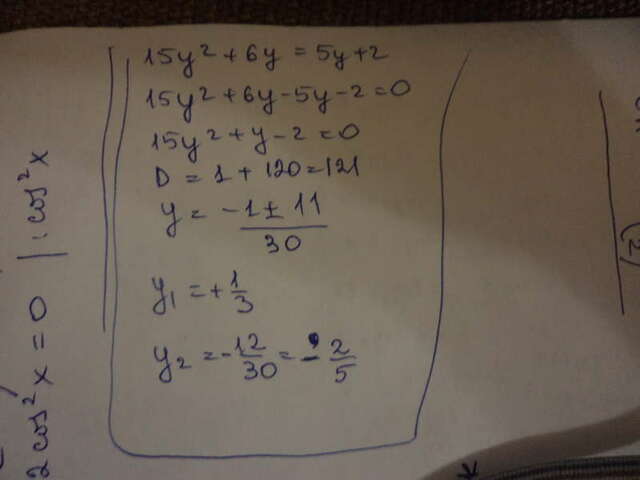 15y² + 6y = 5y + 2
15y² + 6y - 5y - 2 = 0
15y² + y - 2 = 0
D = 1 + 120 = 121
y = -1 ± 11 / 30
y₁ = + 1/3
y₂ = - 12/30 = - 2/5
2 cos² x = 0 | : cos² x
(2)